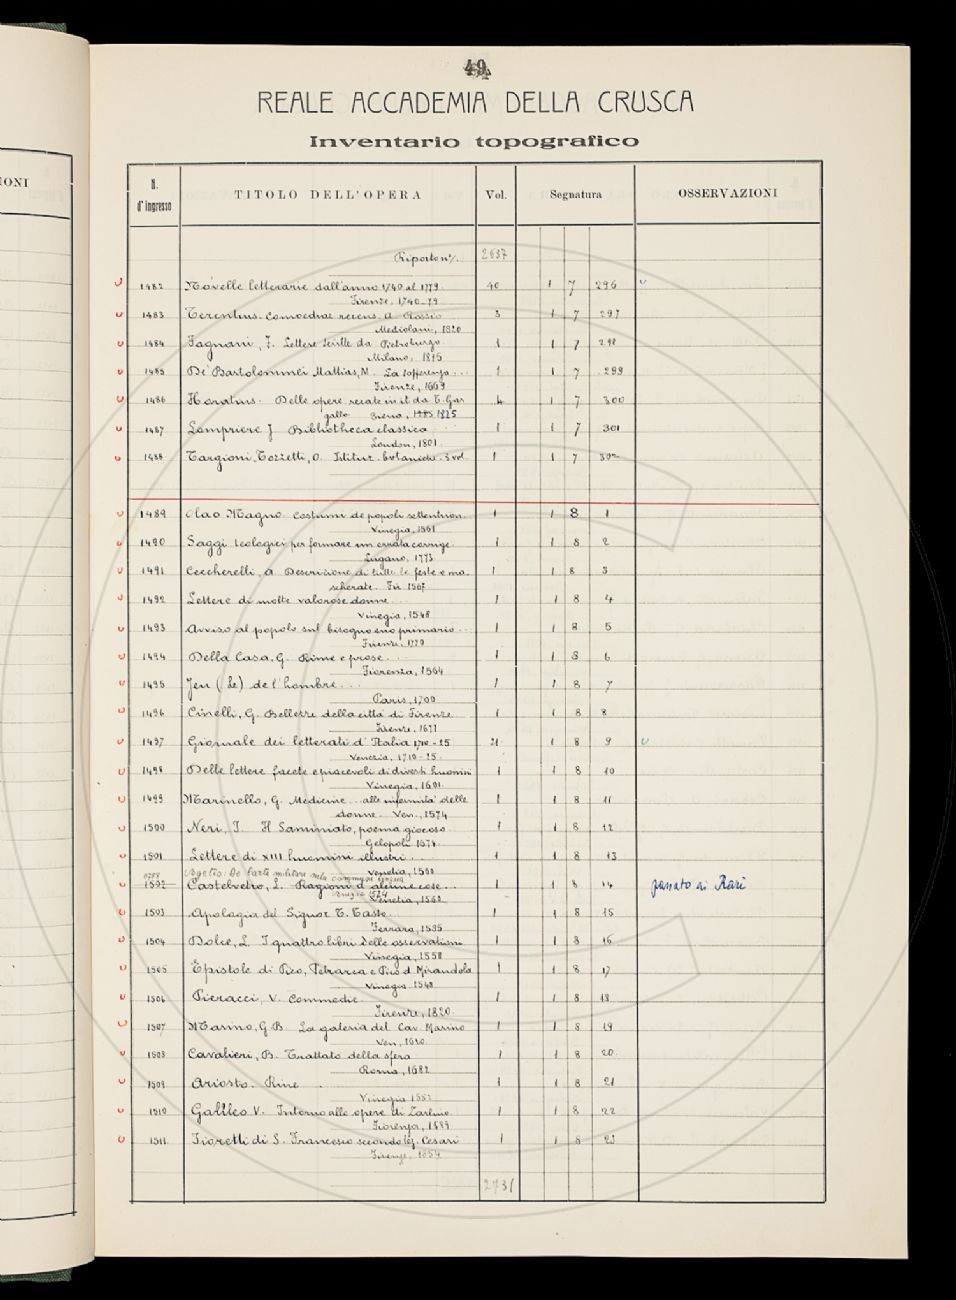 IONI
49
REALE ACCADEMIA DELLA CRUSCA
Inventario topografico
N. d'ingresso TITOLO DELL'OPERA Vol. Segnatura OSSERVAZIONI
Riporto n/. 2637
1482 Novelle letterarie dall'anno 1740 al 1779 40 1 7 296
Firenze, 1740-79
1483 Terentius. Comoediae recens. a Bossio 3 1 7 297
Mediolani, 1820
1484 Fagnani, F. Lettere scritte da Pietroburgo 1 1 7 298
Milano, 1815
1485 De' Bartolommei Mathias, M. La sofferenza... 1 1 7 299
Firenze, 1669
1486 Horatius. Delle opere recate in it. da T. Gar 4 1 7 300
gallo Siena, 1825
1487 Lempriere J Bibliotheca classica 1 1 7 301
London, 1801
1488 Targioni, Tozzetti, O. Istituz. botaniche. 3 vol. 1 1 7 302
1489 Olao Magno Costumi de popoli settentrion. 1 1 8 1
Vinegia, 1561
1490 Saggi teologici per formare un errata corrige 1 1 8 2
Lugano, 1773
1491 Ceccherelli, A Descrizione di tutte le feste e ma. 1 1 8 3
scherate. Fir. 1567
1492 Lettere di molte valorose donne... 1 1 8 4
Vinegia, 1548
1493 Avviso al popolo sul bisogno suo primario... 1 1 8 5
Firenze, 1779
1494 Della Casa, G. Rime e prose... 1 1 8 6
Fiorenza, 1564
1495 Jeu (Le) de l'hombre... 1 1 8 7
Paris, 1700
1496 Cinelli, G. Bellezze della città di Firenze 1 1 8 8
Firenze, 1677
1497 Giornale dei letterati d'Italia 1710-25 21 1 8 9
Venezia, 1710-25.
1498 Delle lettere facete e piacevoli di diversi huomini 1 1 8 10
Vinegia, 1601
1499 Marinello, G. Medicine... alle infermità delle 1 1 8 11
donne. Ven., 1574
1500 Neri, I. Il Saminiato, poema giocoso. 1 1 8 12
Gelopoli
1501 Lettere di XIII huomini illustri... 1 1 8 13
Venetia, 1560
Vegetio: De l'arte militare nela commune lingua
1502 Castelvetro, L. Ragioni d'alcune cose... 1 1 8 14 passato ai Rari
Venetia, 1560
1503 Apologia del Signor T. Tasso... 1 1 8 15
Ferrara, 1585
1504 Dolce, L. I quattro libri delle osservationi 1 1 8 16
Vinegia, 1558
1505 Epistole di Pico, Petrarca e Pico d. Mirandola 1 1 8 17
Vinegia 1548
1506 Pieracci, V. Commedie. 1 1 8 18
Firenze, 1820
1507 Marino, G B La galeria del Cav. Marino 1 1 8 19
Ven, 1620
1508 Cavalieri, B. Trattato della sfera 1 1 8 20
Roma, 1682
1509 Ariosto. Rime 1 1 8 21
Vinegia 1552
1510 Galileo V. Intorno alle opere di Zarlino. 1 1 8 22
Fiorenza, 1589
1511 Fioretti di S. Francesco secondo lez. Cesari 1 1 8 23
Firenze, 1854
2731